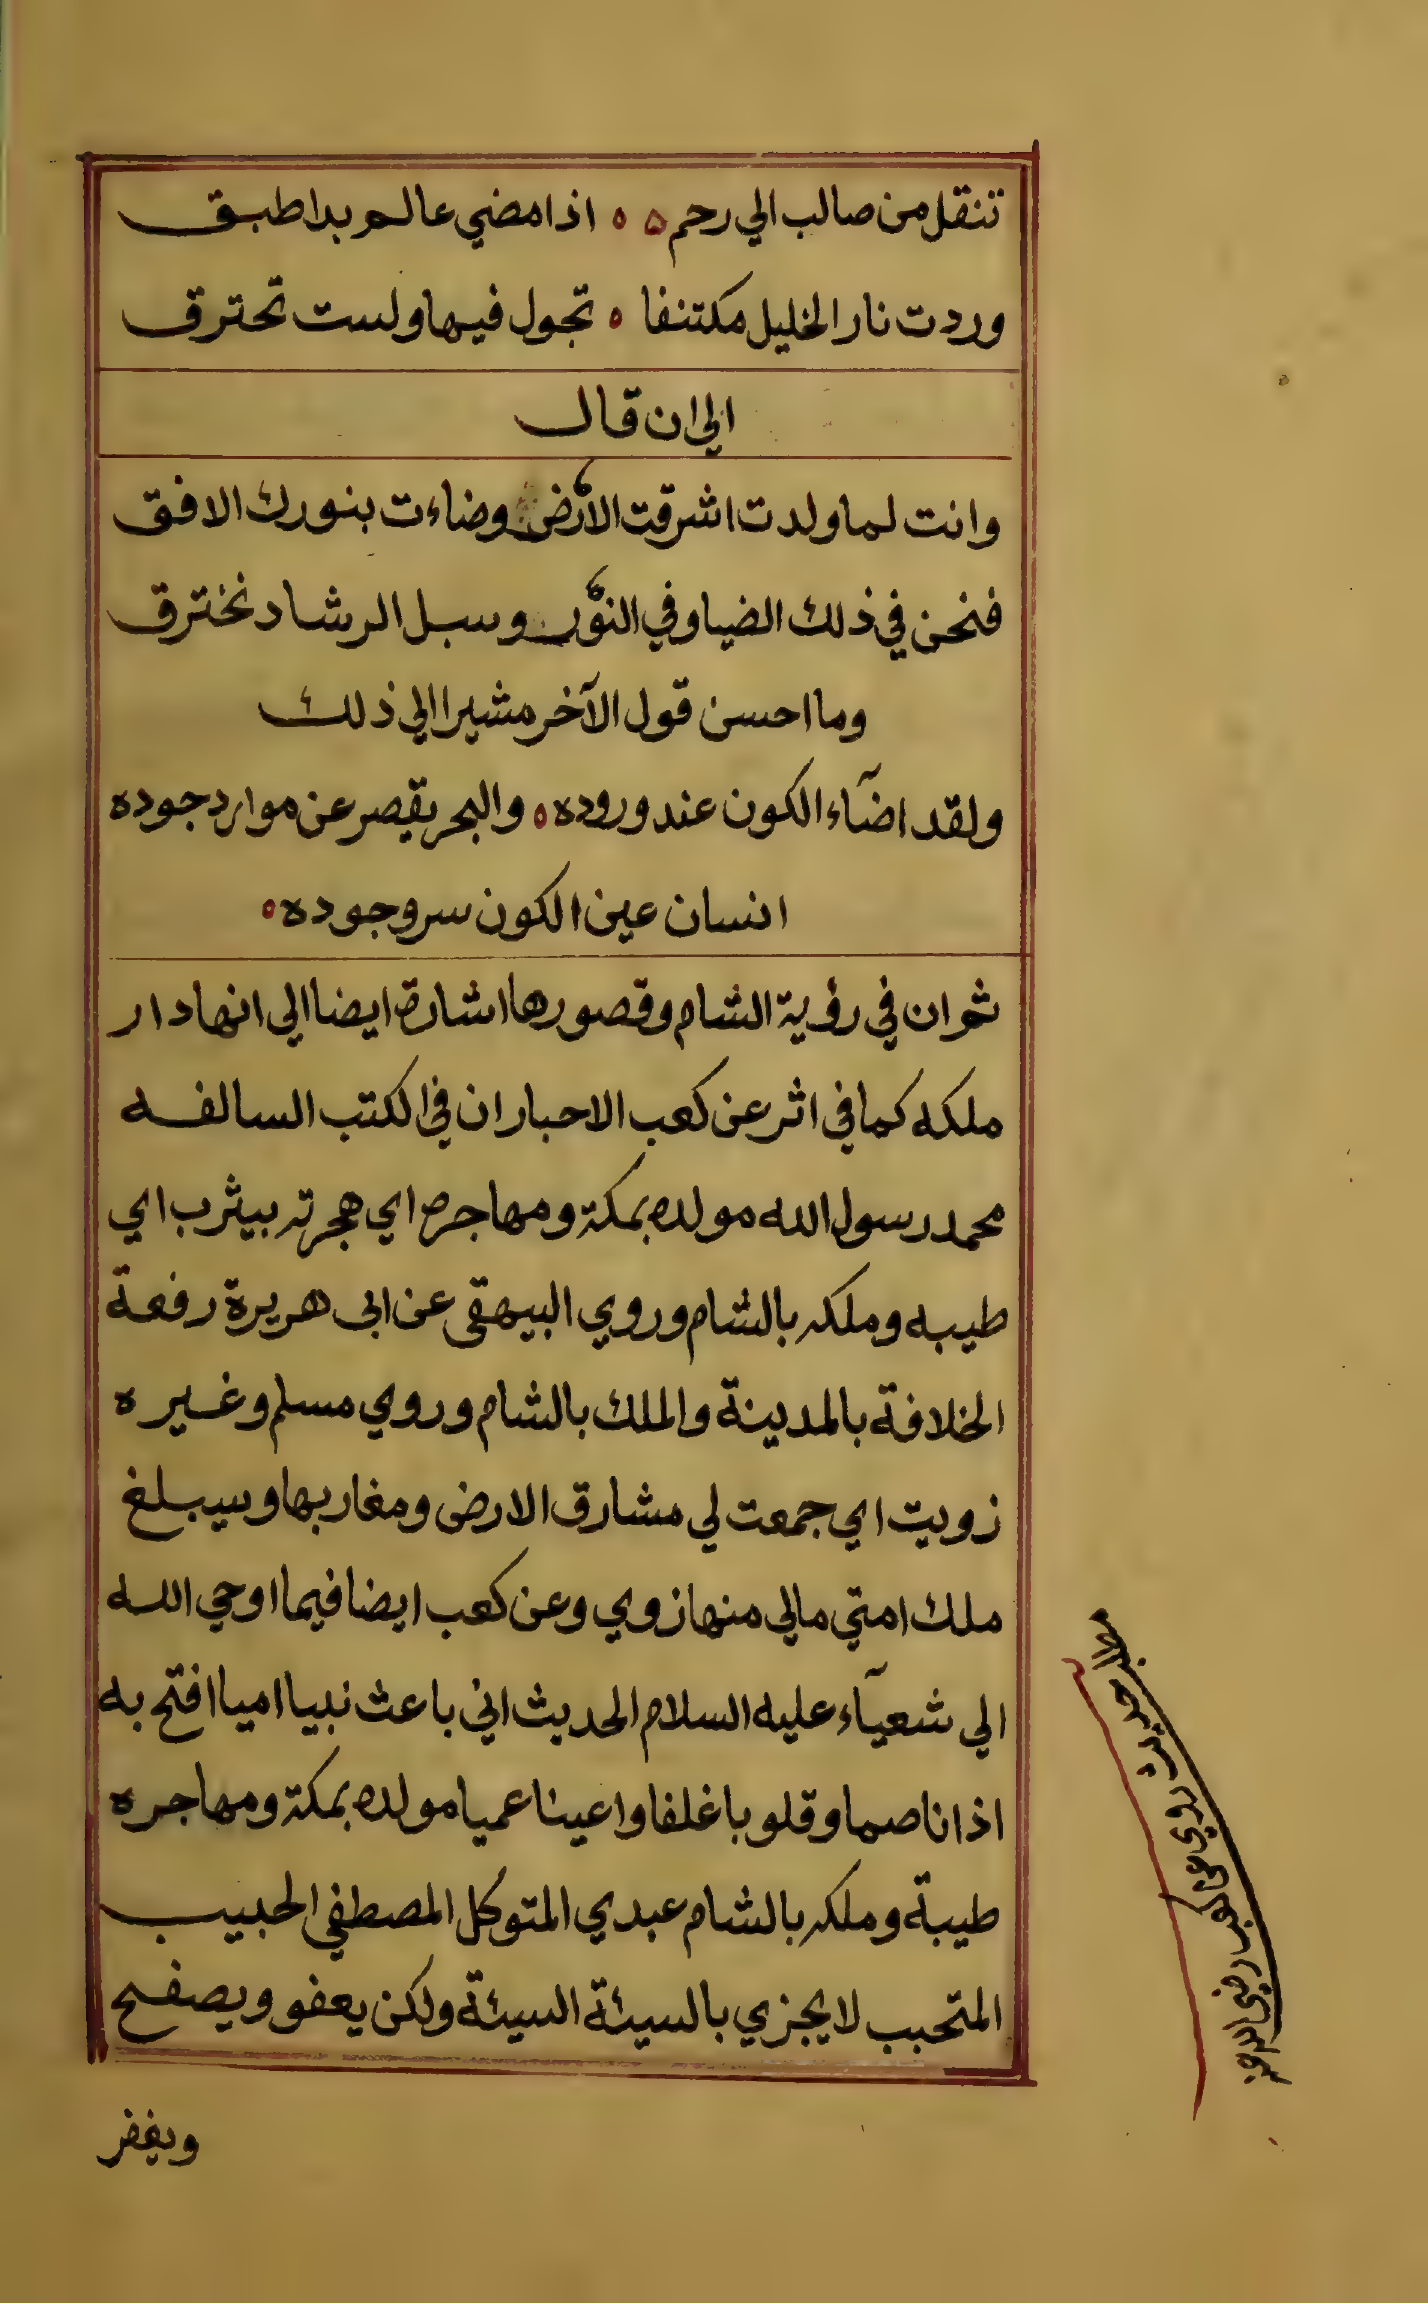 تنقل من صالب الي رحم ه ه اذا مضي عالم بدا طبق
وردت نار الخليل مكتنفا ه تجول فيها ولست تحترق
الي ان قال
وانت لما ولدت اشرقت الأرض وضاءت بنورك الافق
فنحن في ذلك الضيا وفي النور وسبل الرشاد نخترق
وما احسن قول الآخر مشيرا الي ذلك
ولقد اضآء الكون عند وروده ه والبحر يقصر عن موارد جوده
انسان عين الكون سر وجوده ه
ثم ان في رؤية الشام وقصورها اشارة ايضا الي انها دار
ملكه كما في اثر عن كعب الاحبار ان في الكتب السالفه
محمد رسول الله مولده بمكة ومهاجره اي هجرته بيثرب اي
طيبه وملكه بالشام وروي البيهقي عن ابى هريرة رفعة
الخلافة بالمدينة والملك بالشام وروي مسلم وغيره
زويت اي جمعت لي مشارق الارض ومغاربها وسيبلغ
ملك امتي مالي منها زوي وعن كعب ايضا فيما اوحي الله
الي شعيآء عليه السلام الحديث اني باعث نبيا اميا افتح به
اذانا صما وقلوبا غلفا واعينا عميا مولده بمكة ومهاجره
طيبة وملكه بالشام عبدي المتوكل المصطفي الحبيب
المتحبب لا يجزي بالسيئة السيئة ولكن يعفو ويصفح
ويغفر
حديث روي عن كعب رضي الله عنه